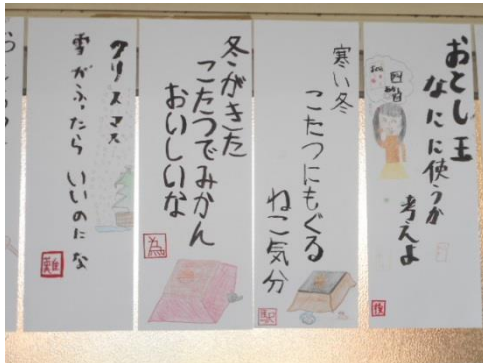 おとし王
なにに使うか
考えよ
寒い冬
こたつにもぐる
ねこ気分
冬がきた
こたつでみかん
おいしいな
為
クリスマス
雪がふったら いいのにな
難